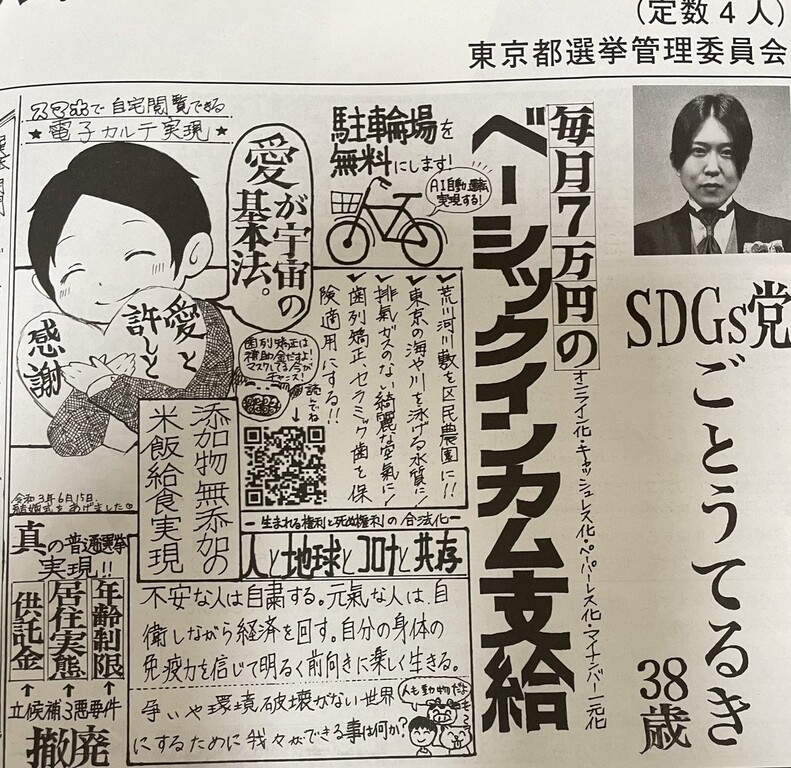 （定数４人）
東京都選挙管理委員会
SDGs党
ごとうてるき
38歳
毎月７万円の
ベーシックインカム支給
オンライン化・キャッシュレス化・ペーパーレス化・マイナンバー一元化
駐輪場を
無料にします！
AI自動運転
実現する！
スマホで自宅閲覧できる
★電子カルテ実現★
愛が宇宙の
基本法。
愛と
許しと
感謝
✓荒川河川敷を区民農園に!!
✓東京の海や川を泳げる水質に！
✓排氣ガスのない綺麗な空氣に！
✓歯列矯正、セラミック歯を保
険適用にする!!
歯列矯正は
補助金だすよ！
マスクしてる今が
チャンス！
読んでね
↓
添加物無添加の
米飯給食実現
令和3年6月15日
結婚式をあげました♡
―生まれる権利と死ぬ権利の合法化―
人と地球とコロナと共存
不安な人は自粛する。元氣な人は、自
衛しながら経済を回す。自分の身体の
免疫力を信じて明るく前向きに楽しく生きる。
争いや環境破壊がない世界
にするために我々ができる事は何か？
人も動物だよ
真の普通選挙
実現!!
年齢制限
居住実態
供託金
↑ ↑ ↑
立候補３悪要件
撤廃